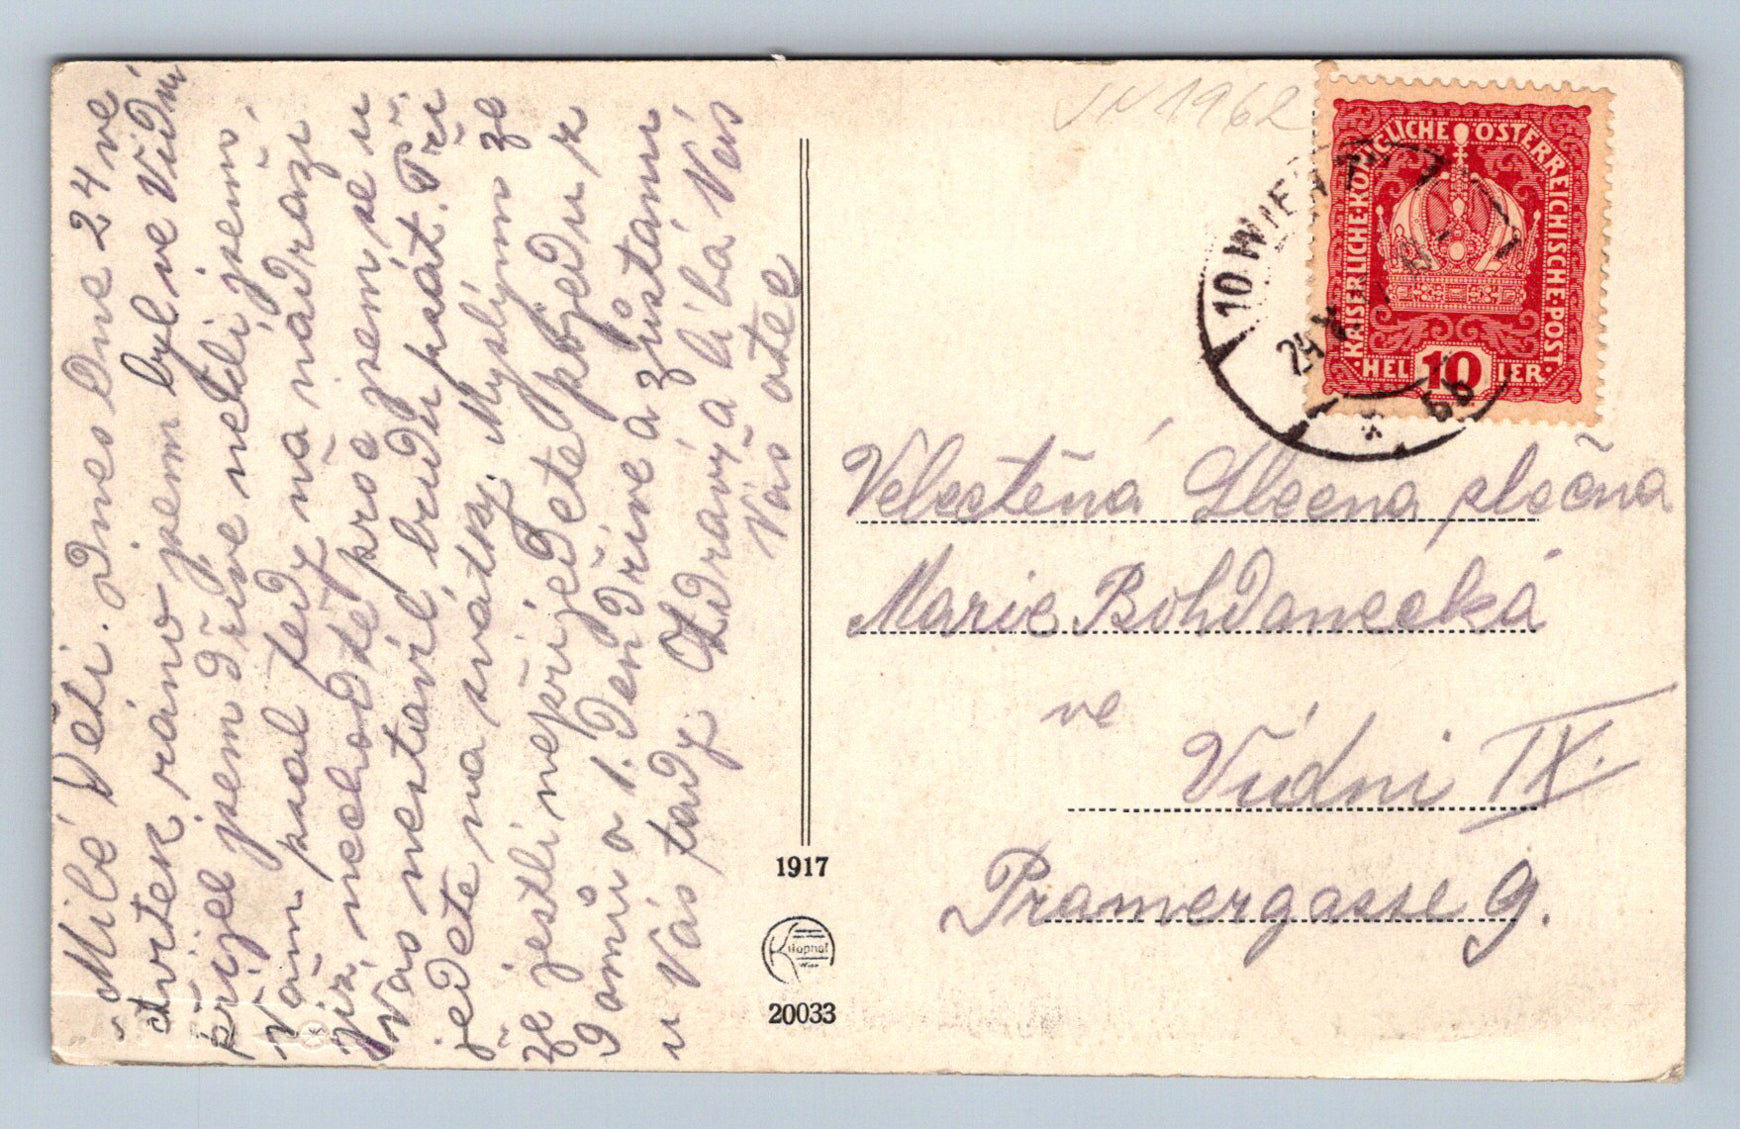 Milé Děti. Dnes dne 24 ve
čtvrtek ráno jsem byl ve Vídni
přijel jsem dříve neželi jsem
Vám psal tedy na nádraží
již nechodte prose jsem se u
Vás nestavil budu psát. Při
jedete na svátky. Myslým ze
že jestli nepřijedete pojedu z
Domů o 1. Den dříve a zůstanu
u Vás tady. Zdravý a líbá Vás
Váš otec
JN 1962
KAISERLICHE KÖNIGLICHE ÖSTERREICHISCHE POST
HELLER 10
10 WIEN
24
6b
Velectěná Slecna slečna
Marie Bohdanecká
ve
Vídni IX.
Pramergasse 9.
1917
Kilophot
Wien
20033